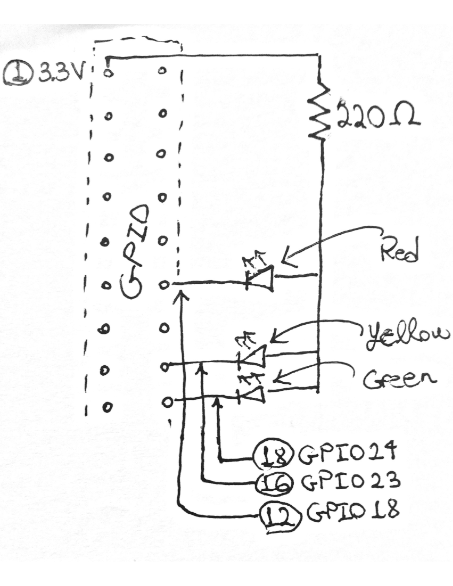 ① 3.3V
220Ω
GPIO
Red
Yellow
Green
⑱ GPIO24
⑯ GPIO23
⑫ GPIO18